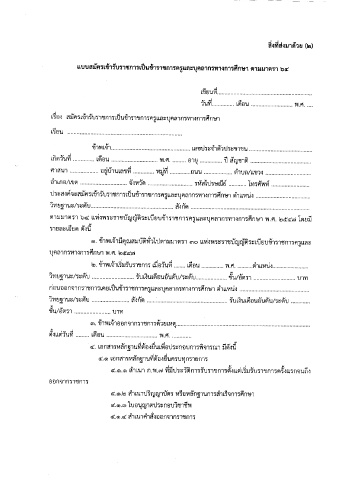 สิ่งที่ส่งมาด้วย (๒)
แบบสมัครเข้ารับราชการเป็นข้าราชการครูและบุคลากรทางการศึกษา ตามมาตรา ๖๔
เขียนที่....................................
วันที่............ เดือน ........................ พ.ศ. ....
เรื่อง สมัครเข้ารับราชการเป็นข้าราชการครูและบุคลากรทางการศึกษา
เรียน ........................................................
ข้าพเจ้า...................................เลขประจำตัวประชาชน.........................
เกิดวันที่ ............ เดือน ........................ พ.ศ. ......... อายุ .......... ปี สัญชาติ ......................
ศาสนา ............... อยู่บ้านเลขที่ ........... หมู่ที่ .............ถนน ............... ตำบล/แขวง ..................
อำเภอ/เขต ....................... จังหวัด ...................... รหัสไปรษณีย์ ............ โทรศัพท์ ..................
ประสงค์จะสมัครเข้ารับราชการเป็นข้าราชการครูและบุคลากรทางการศึกษา ตำแหน่ง ......................
วิทยฐานะ/ระดับ........................................ สังกัด ...................................................
ตามมาตรา ๖๔ แห่งพระราชบัญญัติระเบียบข้าราชการครูและบุคลากรทางการศึกษา พ.ศ. ๒๕๔๗ โดยมี
รายละเอียด ดังนี้
๑. ข้าพเจ้ามีคุณสมบัติทั่วไปตามมาตรา ๓๐ แห่งพระราชบัญญัติระเบียบข้าราชการครูและ
บุคลากรทางการศึกษา พ.ศ. ๒๕๔๗
๒. ข้าพเจ้าเริ่มรับราชการ เมื่อวันที่ ....... เดือน ............ พ.ศ. ..........ตำแหน่ง................
วิทยฐานะ/ระดับ ........................ รับเงินเดือนอันดับ/ระดับ................ ขั้น/อัตรา .................. บาท
ก่อนออกจากราชการเคยเป็นข้าราชการครูและบุคลากรทางการศึกษา ตำแหน่ง ............................
วิทยฐานะ/ระดับ ................. สังกัด ......................................... รับเงินเดือนอันดับ/ระดับ ..........
ขั้น/อัตรา .................. บาท
๓. ข้าพเจ้าออกจากราชการด้วยเหตุ..................................................
ตั้งแต่วันที่ ........ เดือน .................. พ.ศ. ............
๔. เอกสารหลักฐานที่ต้องยื่นเพื่อประกอบการพิจารณา มีดังนี้
๔.๑ เอกสารหลักฐานที่ต้องยื่นครบทุกรายการ
๔.๑.๑ สำเนา ก.พ.๗ ที่มีประวัติการรับราชการตั้งแต่เริ่มรับราชการครั้งแรกจนถึง
ออกจากราชการ
๔.๑.๒ สำเนาปริญญาบัตร หรือหลักฐานการสำเร็จการศึกษา
๔.๑.๓ ใบอนุญาตประกอบวิชาชีพ
๔.๑.๔ สำเนาคำสั่งออกจากราชการ